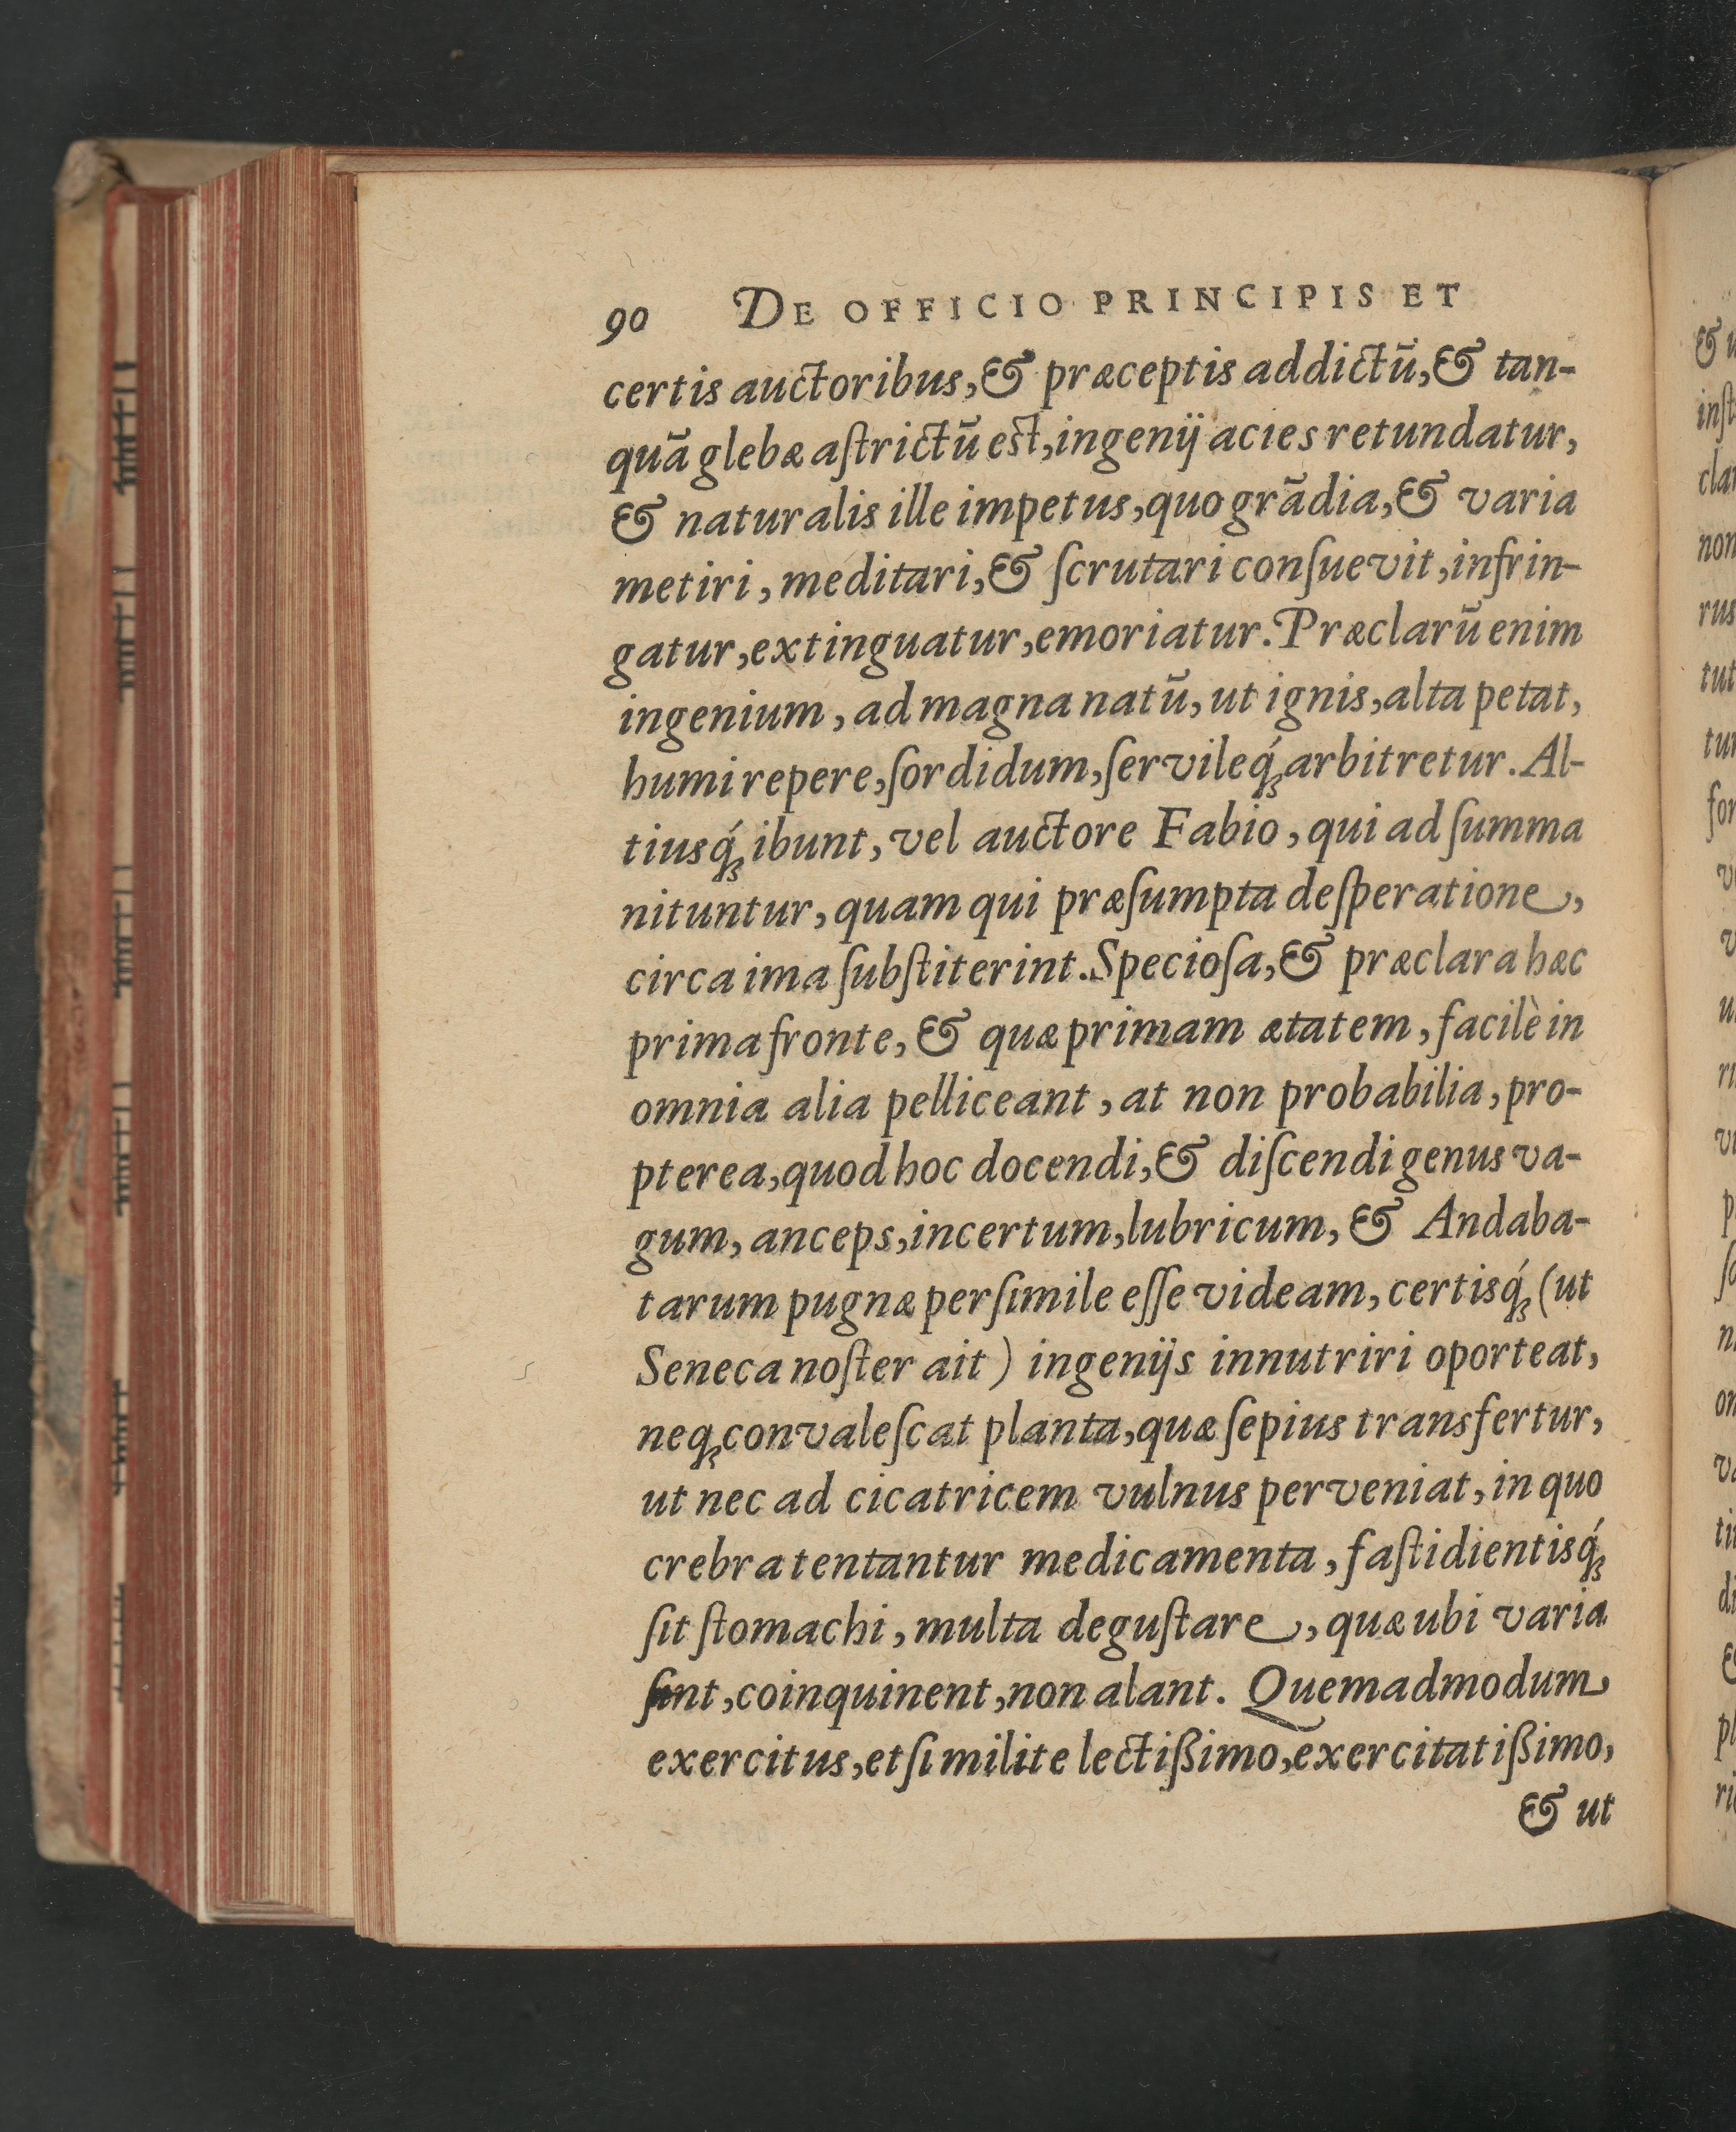 90 DE OFFICIO PRINCIPIS ET
certis auctoribus, & præceptis addictū, & tan-
quā glebæ aſtrictū est, ingenij acies retundatur,
& naturalis ille impetus, quo grādia, & varia
metiri, meditari, & ſcrutari conſuevit, infrin-
gatur, extinguatur, emoriatur. Præclarū enim
ingenium, ad magna natū, ut ignis, alta petat,
humi repere, ſordidum, ſervileq́; arbitretur. Al-
tiusq́; ibunt, vel auctore Fabio, qui ad ſumma
nituntur, quam qui præſumpta deſperatione,
circa ima ſubſtiterint. Specioſa, & præclara hæc
prima fronte, & quæ primam ætatem, facilè in
omnia alia pelliceant, at non probabilia, pro-
pterea, quod hoc docendi, & diſcendi genus va-
gum, anceps, incertum, lubricum, & Andaba-
tarum pugnæ perſimile eſſe videam, certisq́; (ut
Seneca noſter ait) ingenijs innutriri oporteat,
neq; convaleſcat planta, quæ ſepius transfertur,
ut nec ad cicatricem vulnus perveniat, in quo
crebra tentantur medicamenta, faſtidientisq́;
ſit ſtomachi, multa deguſtare, quæ ubi varia
ſint, coinquinent, non alant. Quemadmodum
exercitus, etſi milite lectißimo, exercitatißimo,
& ut